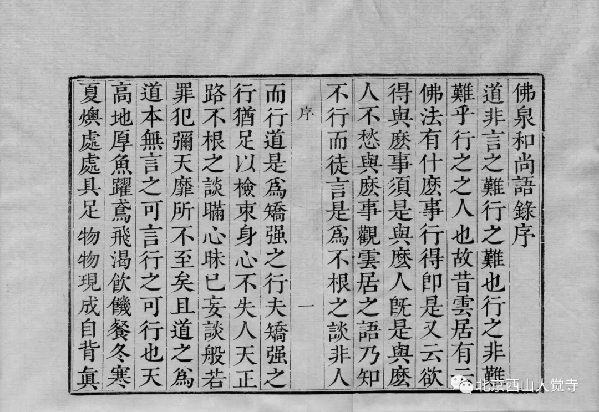 佛泉和尚語錄序
道非言之難行之難也行之非難
難乎行之之人也故昔雲居有云
佛法有什麽事行得即是又云欲
得與麽事須是與麽人旣是與麽
人不愁與麽事觀雲居之語乃知
不行而徒言是爲不根之談非人
序
一
而行道是爲矯强之行夫矯强之
行猶足以檢束身心不失人天正
路不根之談瞞心昧已妄談般若
罪犯彌天靡所不至矣且道之爲
道本無言之可言行之可行也天
高地厚魚躍鳶飛渴飮饑餐冬寒
夏燠處處具足物物現成自背眞
北京西山大觉寺